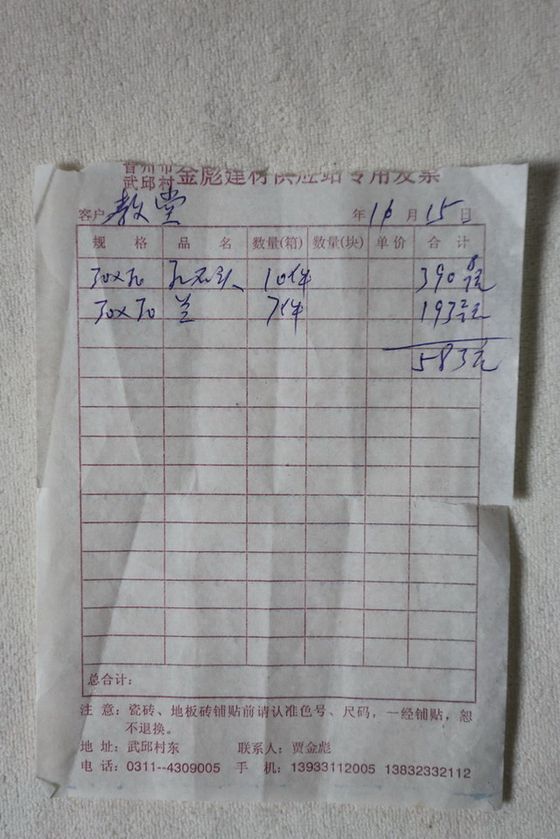 晋州市
武邱村 金彪建材供应站专用发票
客户 教堂 年 10 月 15 日
规 格 品 名 数量(箱) 数量(块) 单价 合 计
30×30 10件 390
30×30 兰 7件 193
583元
总合计：
注 意：瓷砖、地板砖铺贴前请认准色号、尺码，一经铺贴，恕
不退换。
地 址：武邱村东 联系人：贾金彪
电 话：0311--4309005 手 机：13933112005 13832332112